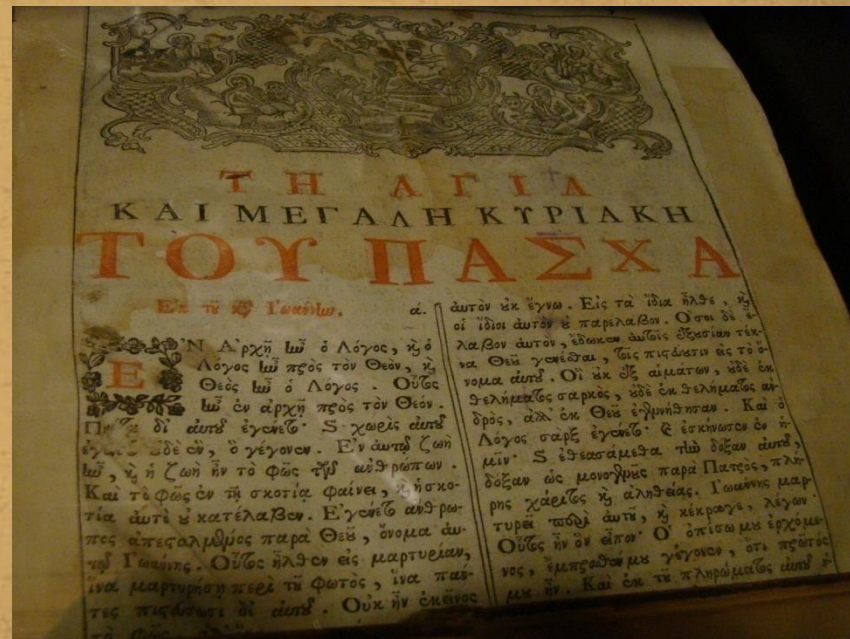 ΤΗ ΑΓΙΑ
ΚΑΙ ΜΕΓΑΛΗ ΚΥΡΙΑΚΗ
ΤΟΥ ΠΑΣΧΑ
Ἐκ τῦ κατὰ Ἰωάννην. ά.
ΕΝ Ἀρχῇ ἦν ὁ Λόγος, καὶ ὁ
Λόγος ἦν πρὸς τὸν Θεὸν, καὶ
Θεὸς ἦν ὁ Λόγος. Οὗτος
ἦν ἐν ἀρχῇ πρὸς τὸν Θεόν.
Πάντα δι' αὐτοῦ ἐγένετο· καὶ χωρὶς αὐτοῦ
ἐγένετο οὐδὲ ἓν, ὃ γέγονεν. Ἐν αὐτῷ ζωὴ
ἦν, καὶ ἡ ζωὴ ἦν τὸ φῶς τῶν ἀνθρώπων.
Καὶ τὸ φῶς ἐν τῇ σκοτίᾳ φαίνει, καὶ ἡ σκο-
τία αὐτὸ οὐ κατέλαβεν. Ἐγένετο ἄνθρω-
πος ἀπεσταλμένος παρὰ Θεοῦ, ὄνομα αὐ-
τῷ Ἰωάννης. Οὗτος ἦλθεν εἰς μαρτυρίαν,
ἵνα μαρτυρήσῃ περὶ τοῦ φωτός, ἵνα πάν-
τες πιστεύσωσι δι' αὐτοῦ. Οὐκ ἦν ἐκεῖνος
τὸ φῶς
αὐτὸν οὐκ ἔγνω. Εἰς τὰ ἴδια ἦλθε, καὶ
οἱ ἴδιοι αὐτὸν οὐ παρέλαβον. Ὅσοι δὲ ἔ-
λαβον αὐτὸν, ἔδωκεν αὐτοῖς ἐξουσίαν τέκ-
να Θεοῦ γενέσθαι, τοῖς πιστεύουσιν εἰς τὸ ὄ-
νομα αὐτοῦ. Οἳ οὐκ ἐξ αἱμάτων, οὐδὲ ἐκ
θελήματος σαρκὸς, οὐδὲ ἐκ θελήματος ἀν-
δρὸς, ἀλλ' ἐκ Θεοῦ ἐγεννήθησαν. Καὶ ὁ
Λόγος σὰρξ ἐγένετο· καὶ ἐσκήνωσεν ἐν ἡ-
μῖν· καὶ ἐθεασάμεθα τὴν δόξαν αὐτοῦ,
δόξαν ὡς μονογενοῦς παρὰ Πατρὸς, πλή-
ρης χάριτος καὶ ἀληθείας. Ἰωάννης μαρ-
τυρεῖ περὶ αὐτοῦ, καὶ κέκραγε, λέγων·
Οὗτος ἦν ὃν εἶπον· Ὁ ὀπίσω μου ἐρχόμε-
νος, ἔμπροσθέν μου γέγονεν, ὅτι πρῶτός
μου ἦν. Καὶ ἐκ τοῦ πληρώματος αὐτοῦ ἡ-